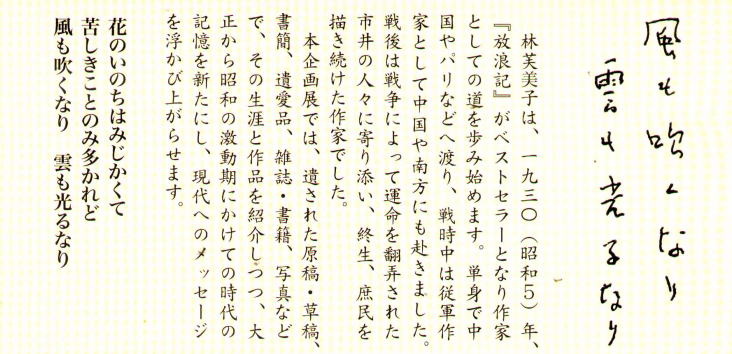 風も吹くなり
雲も光るなり
林芙美子は、一九三〇(昭和5)年、
『放浪記』がベストセラーとなり作家
としての道を歩み始めます。単身で中
国やパリなどへ渡り、戦時中は従軍作
家として中国や南方にも赴きました。
戦後は戦争によって運命を翻弄された
市井の人々に寄り添い、終生、庶民を
描き続けた作家でした。
本企画展では、遺された原稿・草稿、
書簡、遺愛品、雑誌・書籍、写真など
で、その生涯と作品を紹介しつつ、大
正から昭和の激動期にかけての時代の
記憶を新たにし、現代へのメッセージ
を浮かび上がらせます。
花のいのちはみじかくて
苦しきことのみ多かれど
風も吹くなり 雲も光るなり